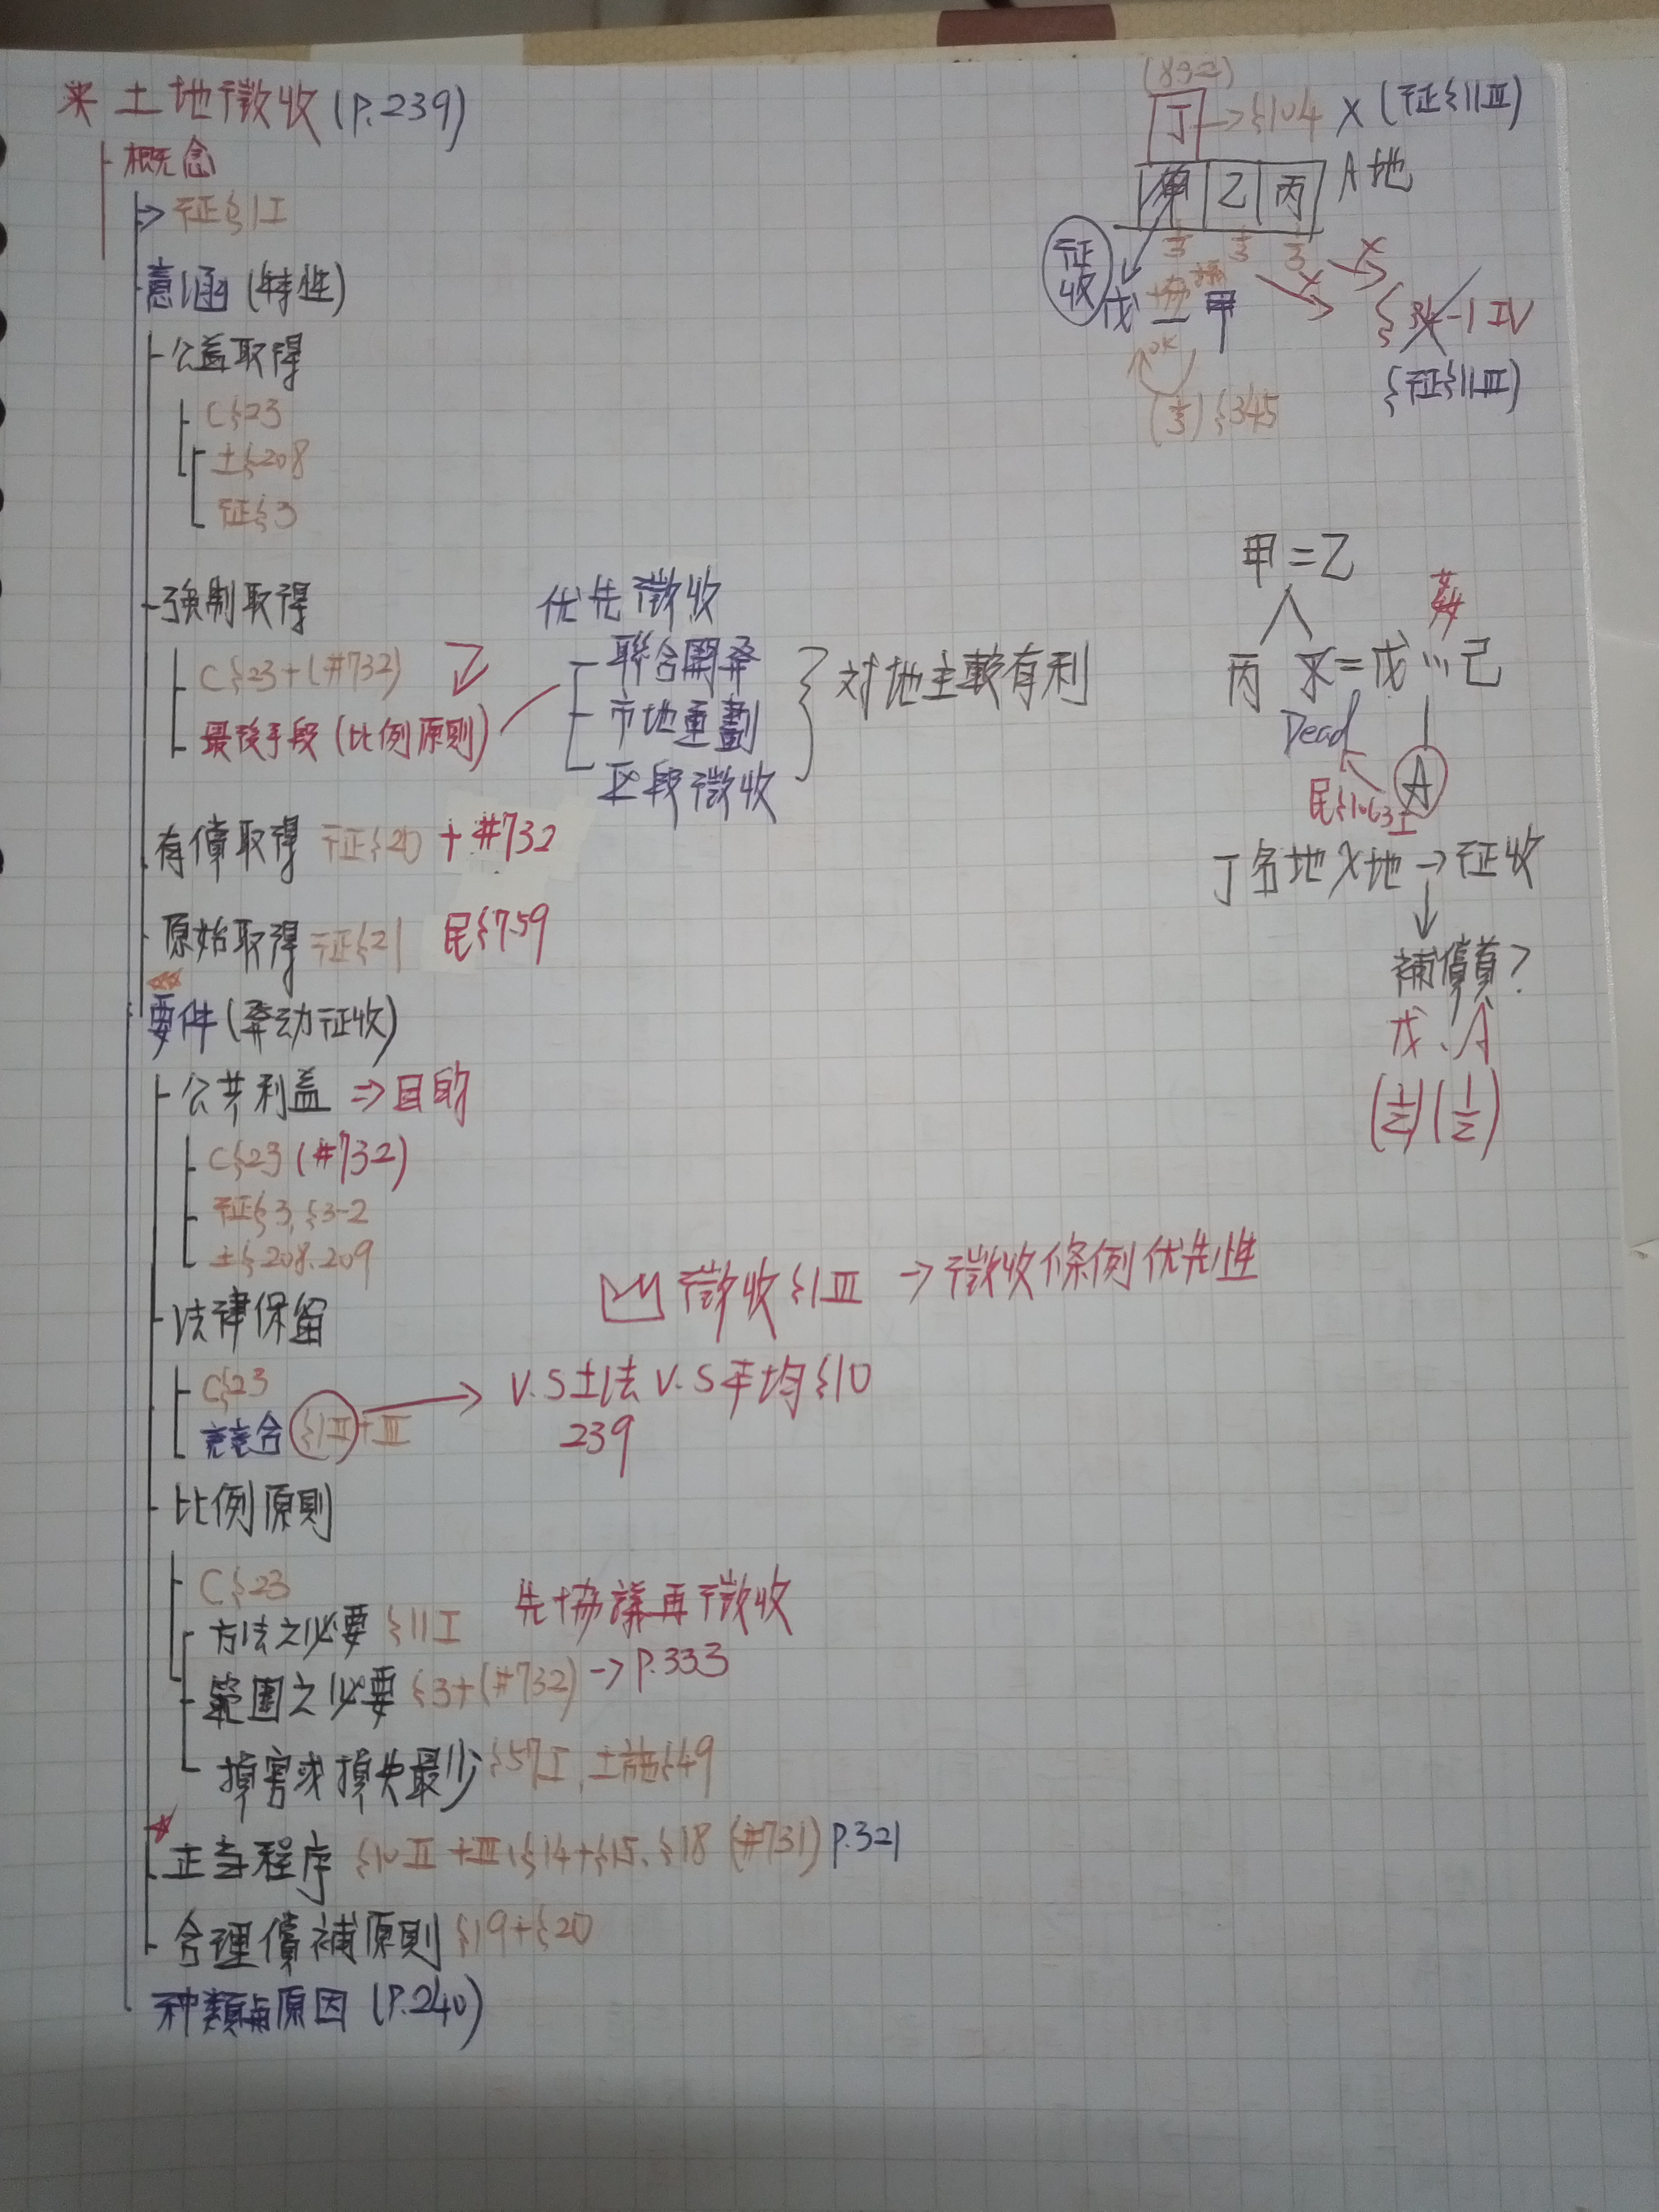 土地徵收(P.239)
概念
→ 征§1I
意涵(特性)
公益取得
C§23
土§208
征§3
強制取得
C§23+(#732)
最後手段(比例原則)
优先徵收
聯合開發
市地重劃
区段徵收
对地主較有利
有償取得 征§20 + #732
原始取得 征§21 民§759
要件(發动征收)
公共利益 ⇒目的
C§23 (#732)
征§3, §3-2
土§208.209
法律保留
C§23
競合 §1II+III
徵收§1III → 徵收條例优先性
V.S土法 V.S平均§10
239
比例原則
C§23
方法之必要 §11I 先協議再徵收
範圍之必要 §3+(#732) → P.333
損害或損失最少 §57I, 土施§49
正当程序 §10II+III, §14+§15, §18 (#731) P.321
合理償補原則 §19+§20
种類與原因 (P.240)
丁 → §104 X (征§11III)
乙 丙 A地
1/3 1/3 1/3
征收
戊 甲
OK
§34-1 IV
(征§11III)
(1/3) §345
甲=乙
丙 =戊 己
Dead
A
民§1063I
丁名地X地 → 征收
補償費?
戊、A
(1/2) (1/2)